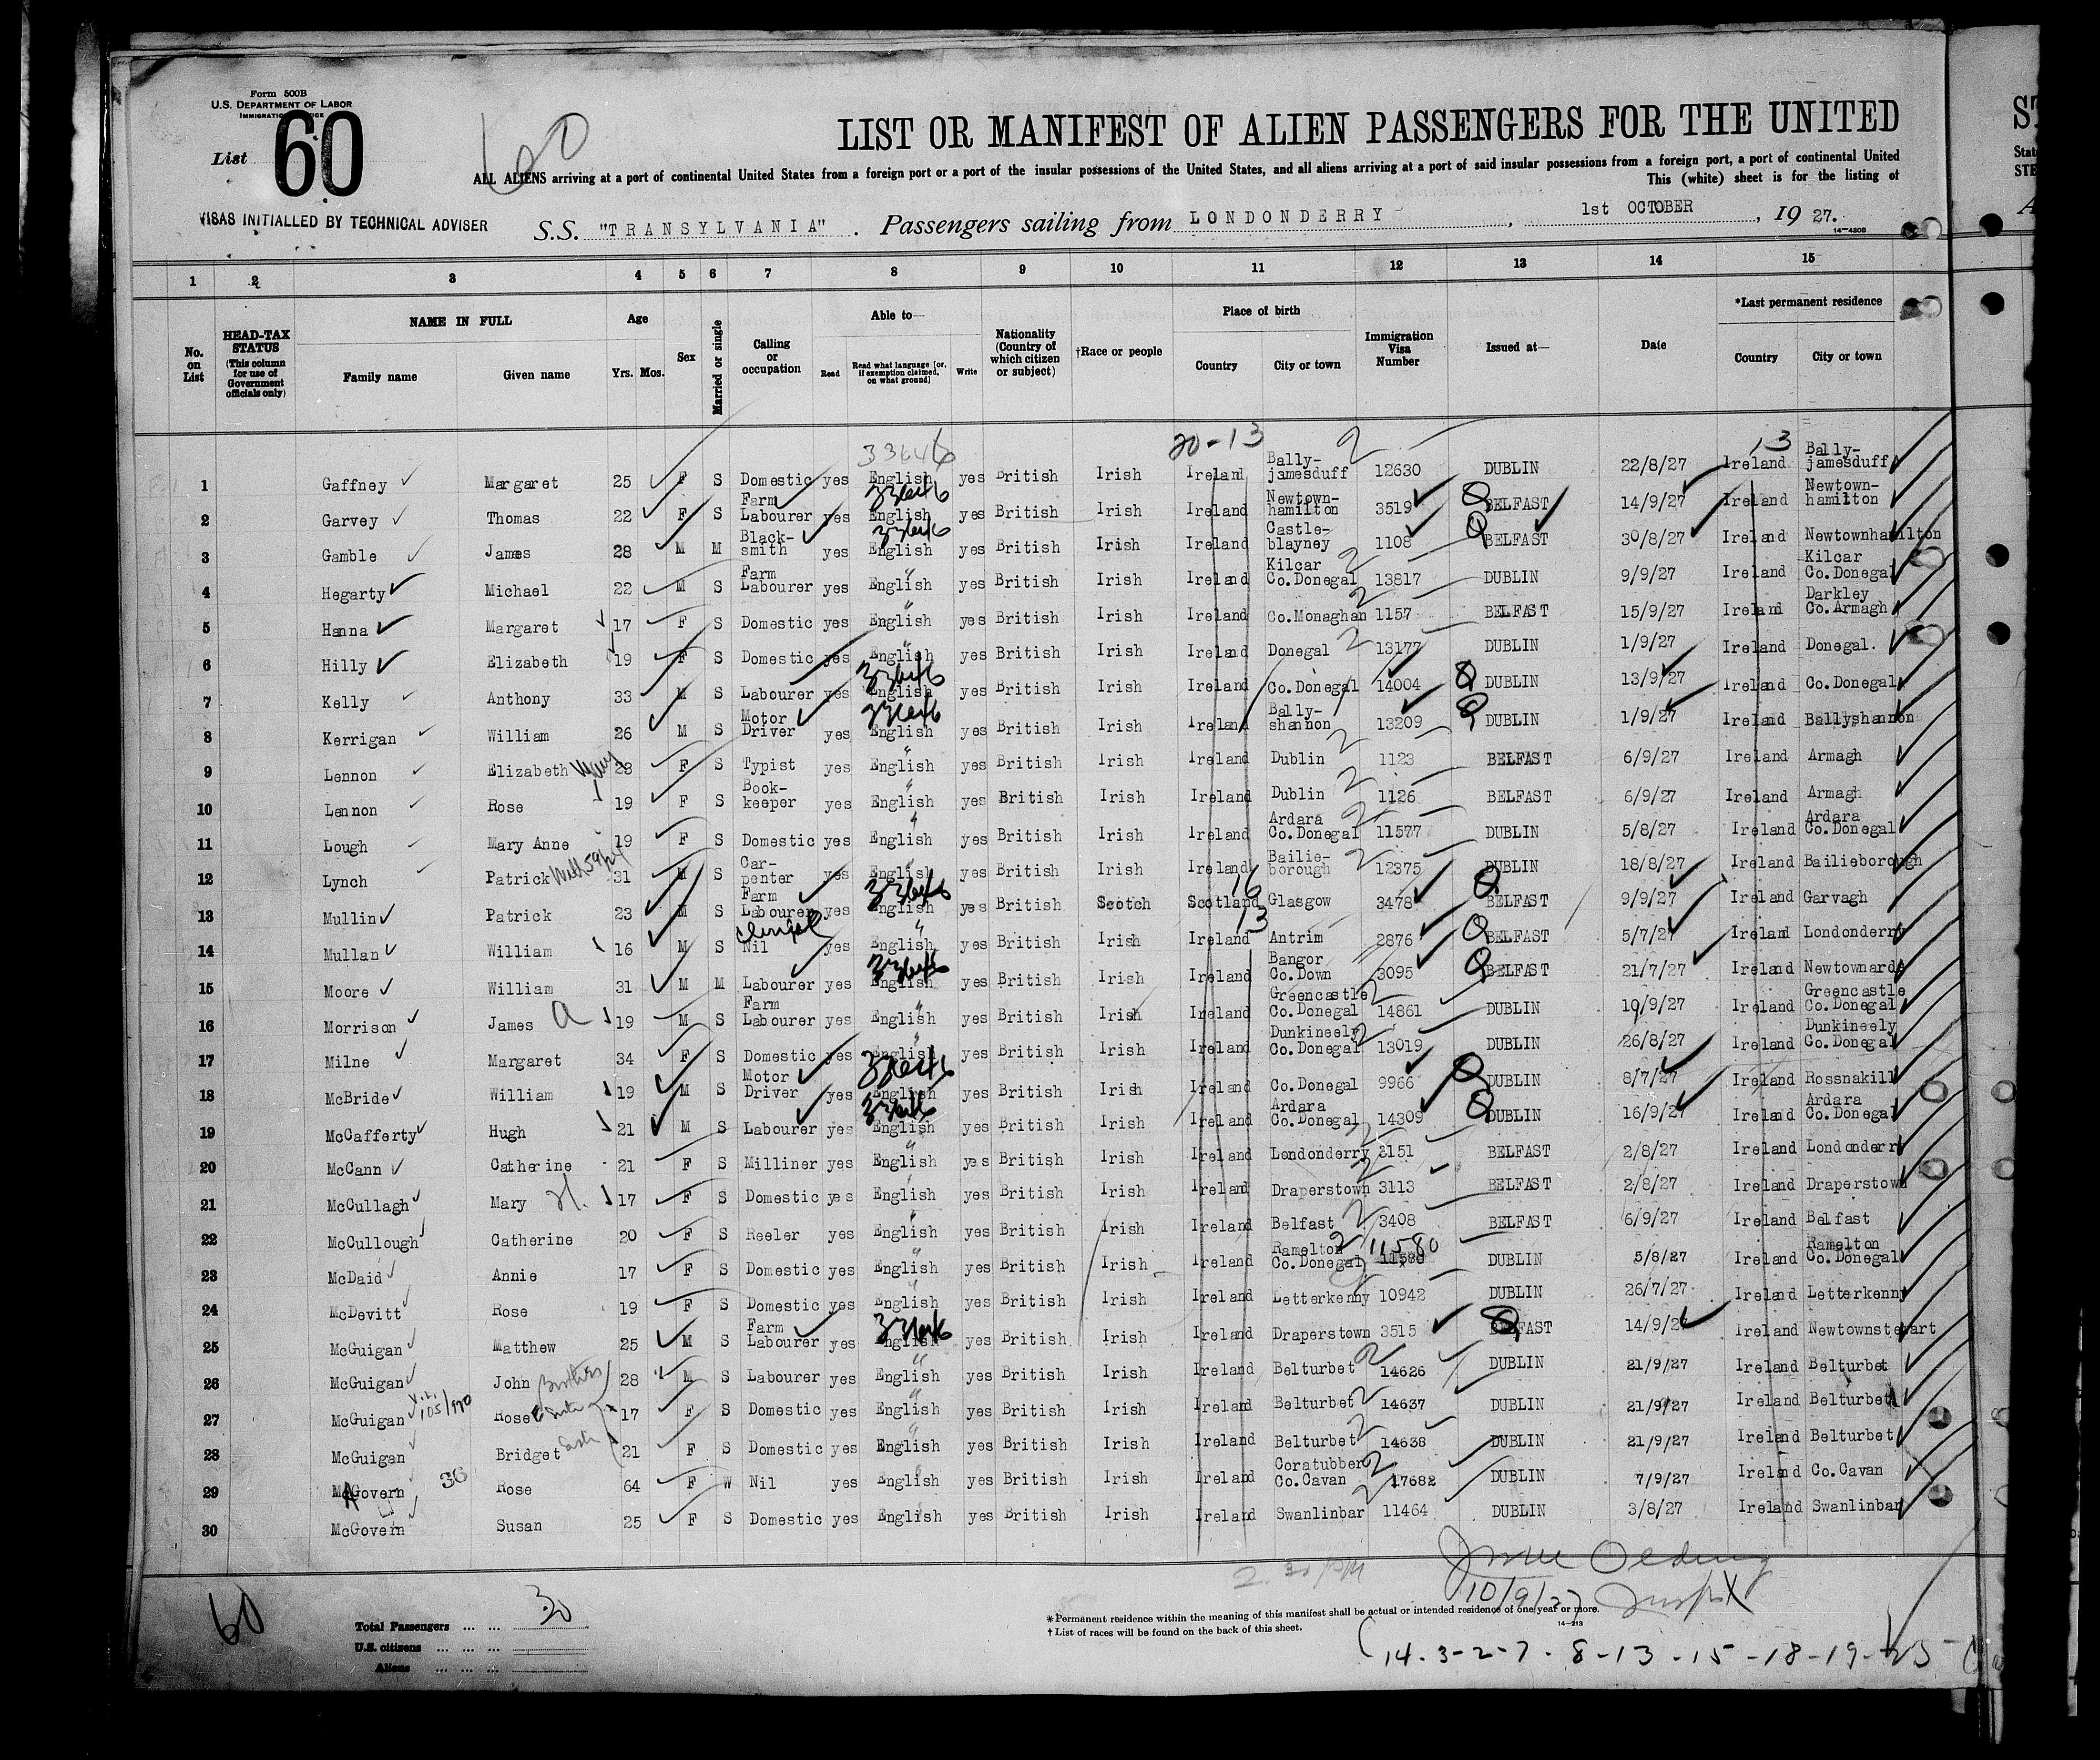 Form 500B
U.S. DEPARTMENT OF LABOR
List 60
60
LIST OR MANIFEST OF ALIEN PASSENGERS FOR THE UNITED
ALL ALIENS arriving at a port of continental United States from a foreign port or a port of the insular possessions of the United States, and all aliens arriving at a port of said insular possessions from a foreign port, a port of continental United
This (white) sheet is for the listing of
VISAS INITIALLED BY TECHNICAL ADVISER
S.S. "TRANSYLVANIA". Passengers sailing from LONDONDERRY, 1st OCTOBER, 1927.
14—430B
1 2 3 4 5 6 7 8 9 10 11 12 13 14 15
No. on List
HEAD-TAX STATUS (This column for use of Government officials only)
NAME IN FULL Family name Given name
Age Yrs. Mos.
Sex
Married or single
Calling or occupation
Able to— Read Read what language [or, if exemption claimed, on what ground] Write
Nationality (Country of which citizen or subject)
†Race or people
Place of birth Country City or town
Immigration Visa Number
Issued at—
Date
*Last permanent residence Country City or town
33646 20-13 2 13
1 Gaffney Margaret 25 F S Domestic yes English yes British Irish Ireland Bally-jamesduff 12630 DUBLIN 22/8/27 Ireland Bally-jamesduff
2 Garvey Thomas 22 F S Farm Labourer yes English yes British Irish Ireland Newtown-hamilton 3519 BELFAST 14/9/27 Ireland Newtown-hamilton
3 Gamble James 28 M M Black-smith yes English yes British Irish Ireland Castle-blayney 1108 BELFAST 30/8/27 Ireland Newtownhamilton
4 Hegarty Michael 22 M S Farm Labourer yes English yes British Irish Ireland Kilcar Co.Donegal 13817 DUBLIN 9/9/27 Ireland Kilcar Co.Donegal
5 Hanna Margaret 17 F S Domestic yes English yes British Irish Ireland Co.Monaghan 1157 BELFAST 15/9/27 Ireland Darkley Co.Armagh
6 Hilly Elizabeth 19 F S Domestic yes English yes British Irish Ireland Donegal 13177 DUBLIN 1/9/27 Ireland Donegal.
7 Kelly Anthony 33 M S Labourer yes English yes British Irish Ireland Co.Donegal 14004 DUBLIN 13/9/27 Ireland Co.Donegal
8 Kerrigan William 26 M S Motor Driver yes English yes British Irish Ireland Bally-shannon 13209 DUBLIN 1/9/27 Ireland Ballyshannon
9 Lennon Elizabeth Mary 28 F S Typist yes English yes British Irish Ireland Dublin 1123 BELFAST 6/9/27 Ireland Armagh
10 Lennon Rose 19 F S Book-keeper yes English yes British Irish Ireland Dublin 1126 BELFAST 6/9/27 Ireland Armagh
11 Lough Mary Anne 19 F S Domestic yes English yes British Irish Ireland Ardara Co.Donegal 11577 DUBLIN 5/8/27 Ireland Ardara Co.Donegal
12 Lynch Patrick 31 M S Car-penter yes English yes British Irish Ireland Bailie-borough 12375 DUBLIN 18/8/27 Ireland Bailieborough
13 Mullin Patrick 23 M S Farm Labourer yes English yes British Scotch Scotland 16 Glasgow 3478 BELFAST 9/9/27 Ireland Garvagh
14 Mullan William 16 M S Clerical Nil yes English yes British Irish Ireland 13 Antrim 2876 BELFAST 5/7/27 Ireland Londonderry
15 Moore William 31 M M Labourer yes English yes British Irish Ireland Bangor Co.Down 3095 BELFAST 21/7/27 Ireland Newtownards
16 Morrison James a 19 M S Farm Labourer yes English yes British Irish Ireland Greencastle Co.Donegal 14861 DUBLIN 19/9/27 Ireland Greencastle Co.Donegal
17 Milne Margaret 34 F S Domestic yes English yes British Irish Ireland Dunkineely Co.Donegal 13019 DUBLIN 26/8/27 Ireland Dunkineely Co.Donegal
18 McBride William 19 M S Motor Driver yes English yes British Irish Ireland Co.Donegal 9966 DUBLIN 8/7/27 Ireland Rossnakill
19 McCafferty Hugh 21 M S Labourer yes English yes British Irish Ireland Ardara Co.Donegal 14309 DUBLIN 16/9/27 Ireland Ardara Co.Donegal
20 McCann Catherine 21 F S Milliner yes English yes British Irish Ireland Londonderry 3151 BELFAST 2/8/27 Ireland Londonderry
21 McCullagh Mary H. 17 F S Domestic yes English yes British Irish Ireland Draperstown 3113 BELFAST 2/8/27 Ireland Draperstown
22 McCullough Catherine 20 F S Reeler yes English yes British Irish Ireland Belfast 3408 BELFAST 6/9/27 Ireland Belfast
23 McDaid Annie 17 F S Domestic yes English yes British Irish Ireland Ramelton Co.Donegal 11580 DUBLIN 5/8/27 Ireland Ramelton Co.Donegal
24 McDevitt Rose 19 F S Domestic yes English yes British Irish Ireland Letterkenny 10942 DUBLIN 26/7/27 Ireland Letterkenny
25 McGuigan Matthew 25 M S Farm Labourer yes English yes British Irish Ireland Draperstown 3515 BELFAST 14/9/27 Ireland Newtownstewart
26 McGuigan John Brother 28 M S Labourer yes English yes British Irish Ireland Belturbet 14626 DUBLIN 21/9/27 Ireland Belturbet
27 McGuigan Rose 17 F S Domestic yes English yes British Irish Ireland Belturbet 14637 DUBLIN 21/9/27 Ireland Belturbet
28 McGuigan Bridget 21 F S Domestic yes English yes British Irish Ireland Belturbet 14638 DUBLIN 21/9/27 Ireland Belturbet
29 McGovern 36 Rose 64 F W Nil yes English yes British Irish Ireland Coratubber Co.Cavan 17682 DUBLIN 7/9/27 Ireland Co.Cavan
30 McGovern Susan 25 F S Domestic yes English yes British Irish Ireland Swanlinbar 11464 DUBLIN 3/8/27 Ireland Swanlinbar
10/9/27
60
Total Passengers ... ... 30
U.S. citizens ... ... ...
Aliens ... ... ...
*Permanent residence within the meaning of this manifest shall be actual or intended residence of one year or more.
† List of races will be found on the back of this sheet.
14—213
14-3-2-7-8-13-15-18-19-25